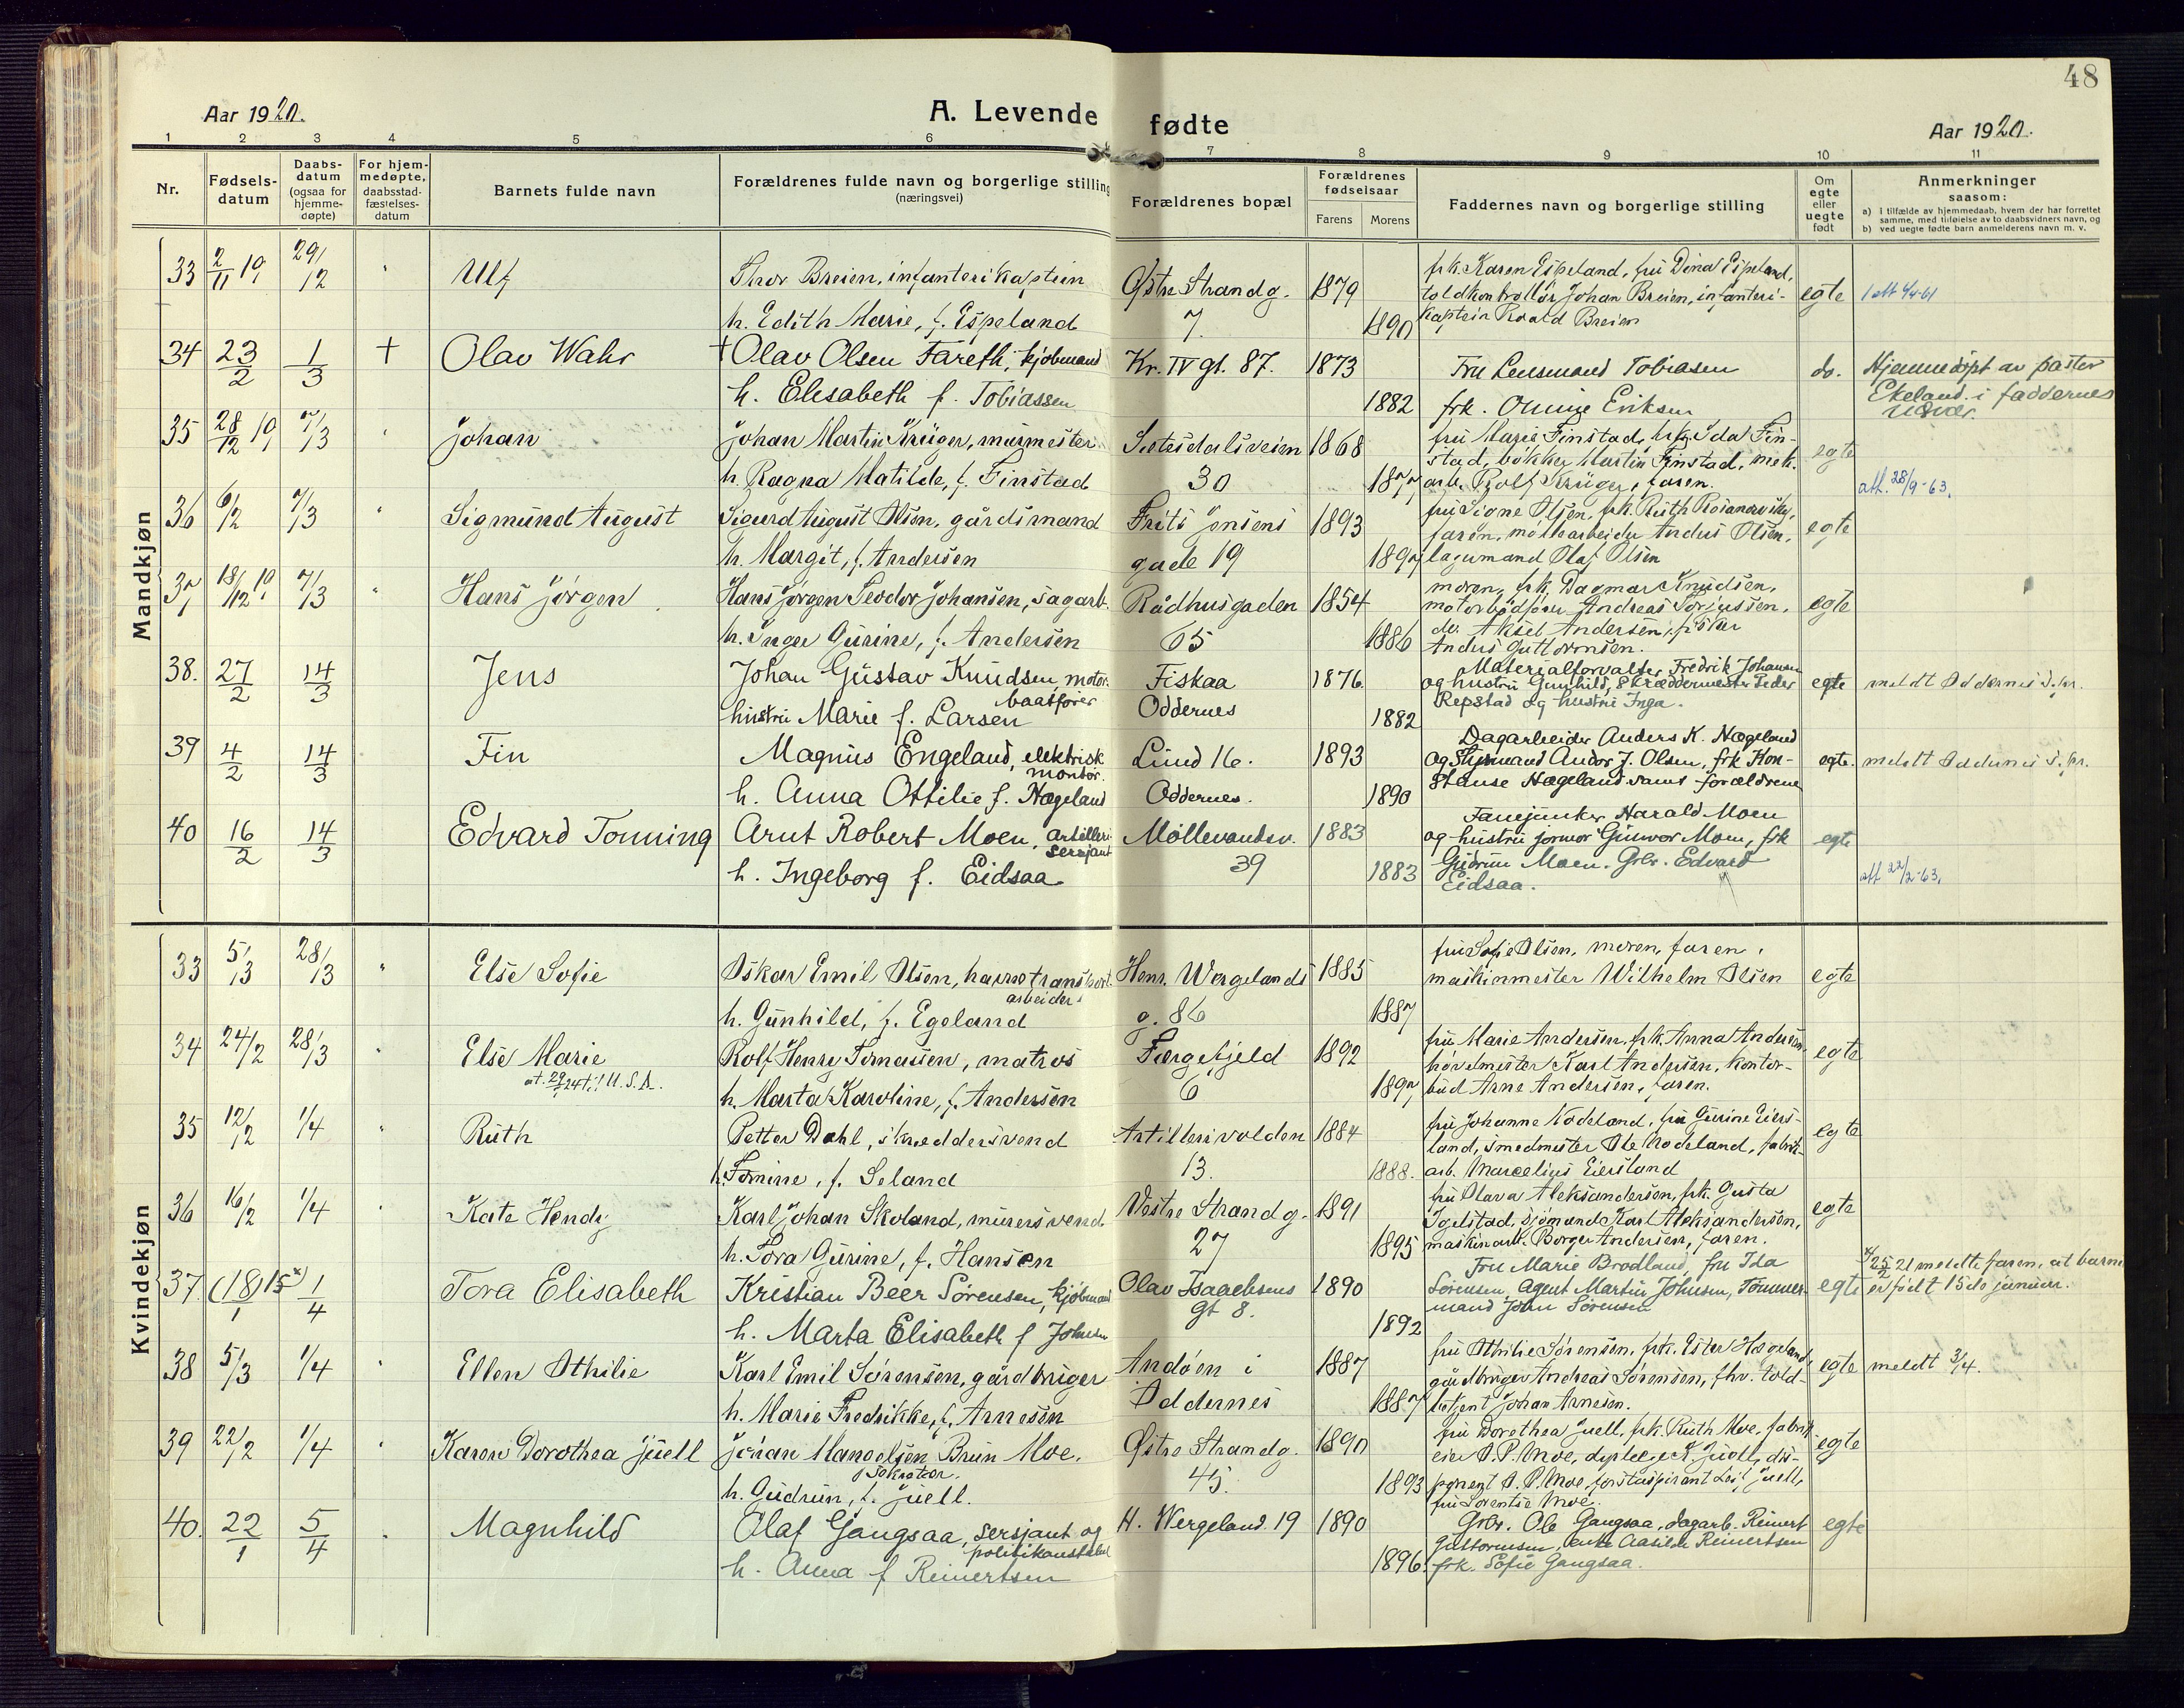 48
Aar 1920.
A. Levende fødte
Aar 1920.
1 2 3 4 5 6 7 8 9 10 11
Nr.
Fødsels-
datum
Daabs-
datum
(ogsaa for
hjemme-
døpte)
For hjem-
medøpte,
daabsstad-
fæstelses-
datum
Barnets fulde navn
Forældrenes fulde navn og borgerlige stilling
(næringsvei)
Forældrenes bopæl
Forældrenes
fødselsaar
Farens Morens
Faddernes navn og borgerlige stilling
Om
egte
eller
uegte
født
Anmerkninger
saasom:
a) i tilfælde av hjemmedaab, hvem der har forrettet
samme, med tilføielse av to daabsvidners navn, og
b) ved uegte fødte barn anmelderens navn m. v.
Mandkjøn
33 2/11 19 29/12 Ulf Thor Breien, infanterikaptein Østre Strandg. 1879 frk. Karen Espeland, fru Dina Espeland, egte 1 att 4/4-61
h. Edith Marie, f. Espeland 7. 1890 toldkontrollør Johan Breien, infanteri-
kaptein Roald Breien
34 23/2 1/3 + Olav Wahr + Olav Olsen Fareth, kjøbmand Kr. IV gt. 87. 1873 Fru Lensmand Tobiasen do. Hjemmedøpt av pastor
h. Elisabeth f. Tobiassen 1882 frk. Eriksen Ekeland i faddernes
nærvær.
35 28/12 19 7/3 Johan Johan Martin Krüger, murmester Sætesdalsveien 1868 fru Marie Finstad, frk. Ida Fin- egte
h. Ragna Matilde, f. Finstad 30 1877 stad, bøkker Martin Finstad, mek.
arb. Rolf Krüger, faren. att. 28/9-63.
36 6/2 7/3 Sigmund August Sigurd August Olsen, gårdsmand Frits Jensens 1893 fru Signe Olsen, frk. Ruth egte
h. Margit, f. Andersen gade 19 1897 faren, møllearbeider Anders Olsen,
lagermand Olaf Olsen
37 18/12 19 7/3 Hans Jørgen Hans Jørgen Teodor Johansen, sagarb. Rådhusgaden 1854 moren, frk. Dagmar Knudsen, egte
h. Inger Gurine, f. Andersen 65 1886 motorbådfører Andreas Torjussen,
do. Aksel Andersen,
Anders Guttormsen.
38. 27/2 14/3 Jens Johan Gustav Knudsen, motor- Fiskaa 1876 Materialforvalter Fredrik Johansen egte meldt Oddernes s. pr.
baatfører
hustru Marie f. Larsen Oddernes 1882 og hustru Gunhild, Skræddermester Peder
Repstad og hustru Inga.
39 4/2 14/3 Fin Magnus Engeland, elektrisk Lund 16. 1893 Dagarbeider Anders K. Nægeland egte. meldt Oddernes s. pr.
montør.
h. Anna Ottilie f. Nægeland Oddernes. 1890 og Styrmand Andor J. Olsen, frk Kon-
stanse Hægeland samt forældrene
40 16/2 14/3 Edvard Tonning Arnt Robert Moen, artilleri Møllevandsv. 1883 Fanejunker Harald Moen egte
sersjant
h. Ingeborg f. Eidsaa 39 1883 og hustru jormor Gunvor Moen, frk
Gudrun Moen. Grbr. Edvard
Eidsaa. att 22/2-63.
Kvindekjøn
33 5/3 28/3 Else Sofie Oskar Emil Olsen, havnetransport- Henr. Wergelands 1885 fru Sofie Olsen, moren, faren, egte
arbeider
h. Gunhild, f. Egeland g. 86 1887 maskinmester Wilhelm Olsen
34 24/2 28/3 Else Marie Rolf Henry Tomassen, matros Færgefjeld 1892 fru Marie Andersen, frk. Anna Andersen, egte
at. 29/2 24 t. U.S.A.
h. Marta Karoline, f. Andersen 6 1897 hovedmester Karl Andersen, kontor-
bud Arne Andersen, faren.
35 12/2 1/4 Ruth Petter Dahl, skreddersvend Artillerivolden 1884 fru Johanne Nodeland, fru Gurine Eiers- egte
h. Tomine, f. Seland 13. 1888. land, smedmester Ole Nodeland, fabrik-
arb. Marcelius Eiersland
36 16/2 1/4 Kate Hendy Karl Johan Skoland, murersvend Vestre Strandg. 1891 fru Olava Aleksandersen, frk. Gusta egte
h. Tora Gurine, f. Hansen 27 1895 Igelstad, sjømand Karl Aleksandersen,
maskinarb. Borger Andersen, faren.
37. (18)/1 15 x) 1/4 Tora Elisabeth Kristian Beer Sørensen, kjøbmand Olav Isaachsens 1890 Fru Marie Brodland, fru Ida egte x) 25/2 21 meldte faren, at barnet
h. Marta Elisabeth f Johnsen gt 8. 1892 Sørensen, Agent Martin Johnsen, Tømmer- er født 15de januar.
mand John Sørensen
38 5/3 1/4 Ellen Othilie Karl Emil Sørensen, gårdbruger Andøen i 1887 fru Othilie Sørensen, frk. Ester Hægeland, egte meldt 3/4.
h. Marie Fredrikke, f. Arnesen Oddernes 1887 gårdbruger Andreas Sørensen, fhv. told-
betjent Johan Arnesen.
39 22/2 1/4 Karen Dorothea Juell Johan Manoelsen Brun Moe, Østre Strandg. 1890 fru Dorothea Juell, frk. Ruth Moe, fabrik- egte
sekretær.
h. Gudrun, f. Juell. 45. 1893 eier O. P. Moe, A. Juell, dis-
ponent O. P. Moe, forstaspirant Leif Juell,
fru Lorentse Moe.
40. 22/1 5/4 Magnhild Olaf Gangsaa, sersjant og H. Wergeland. 19 1890 Grbr. Ole Gangsaa, dagarb. Reinert egte
politikonstabel
h. Anna f Reinertsen 1896 Guttormsen, enke Aasilde Reinertsen
frk. Sofie Gangsaa.